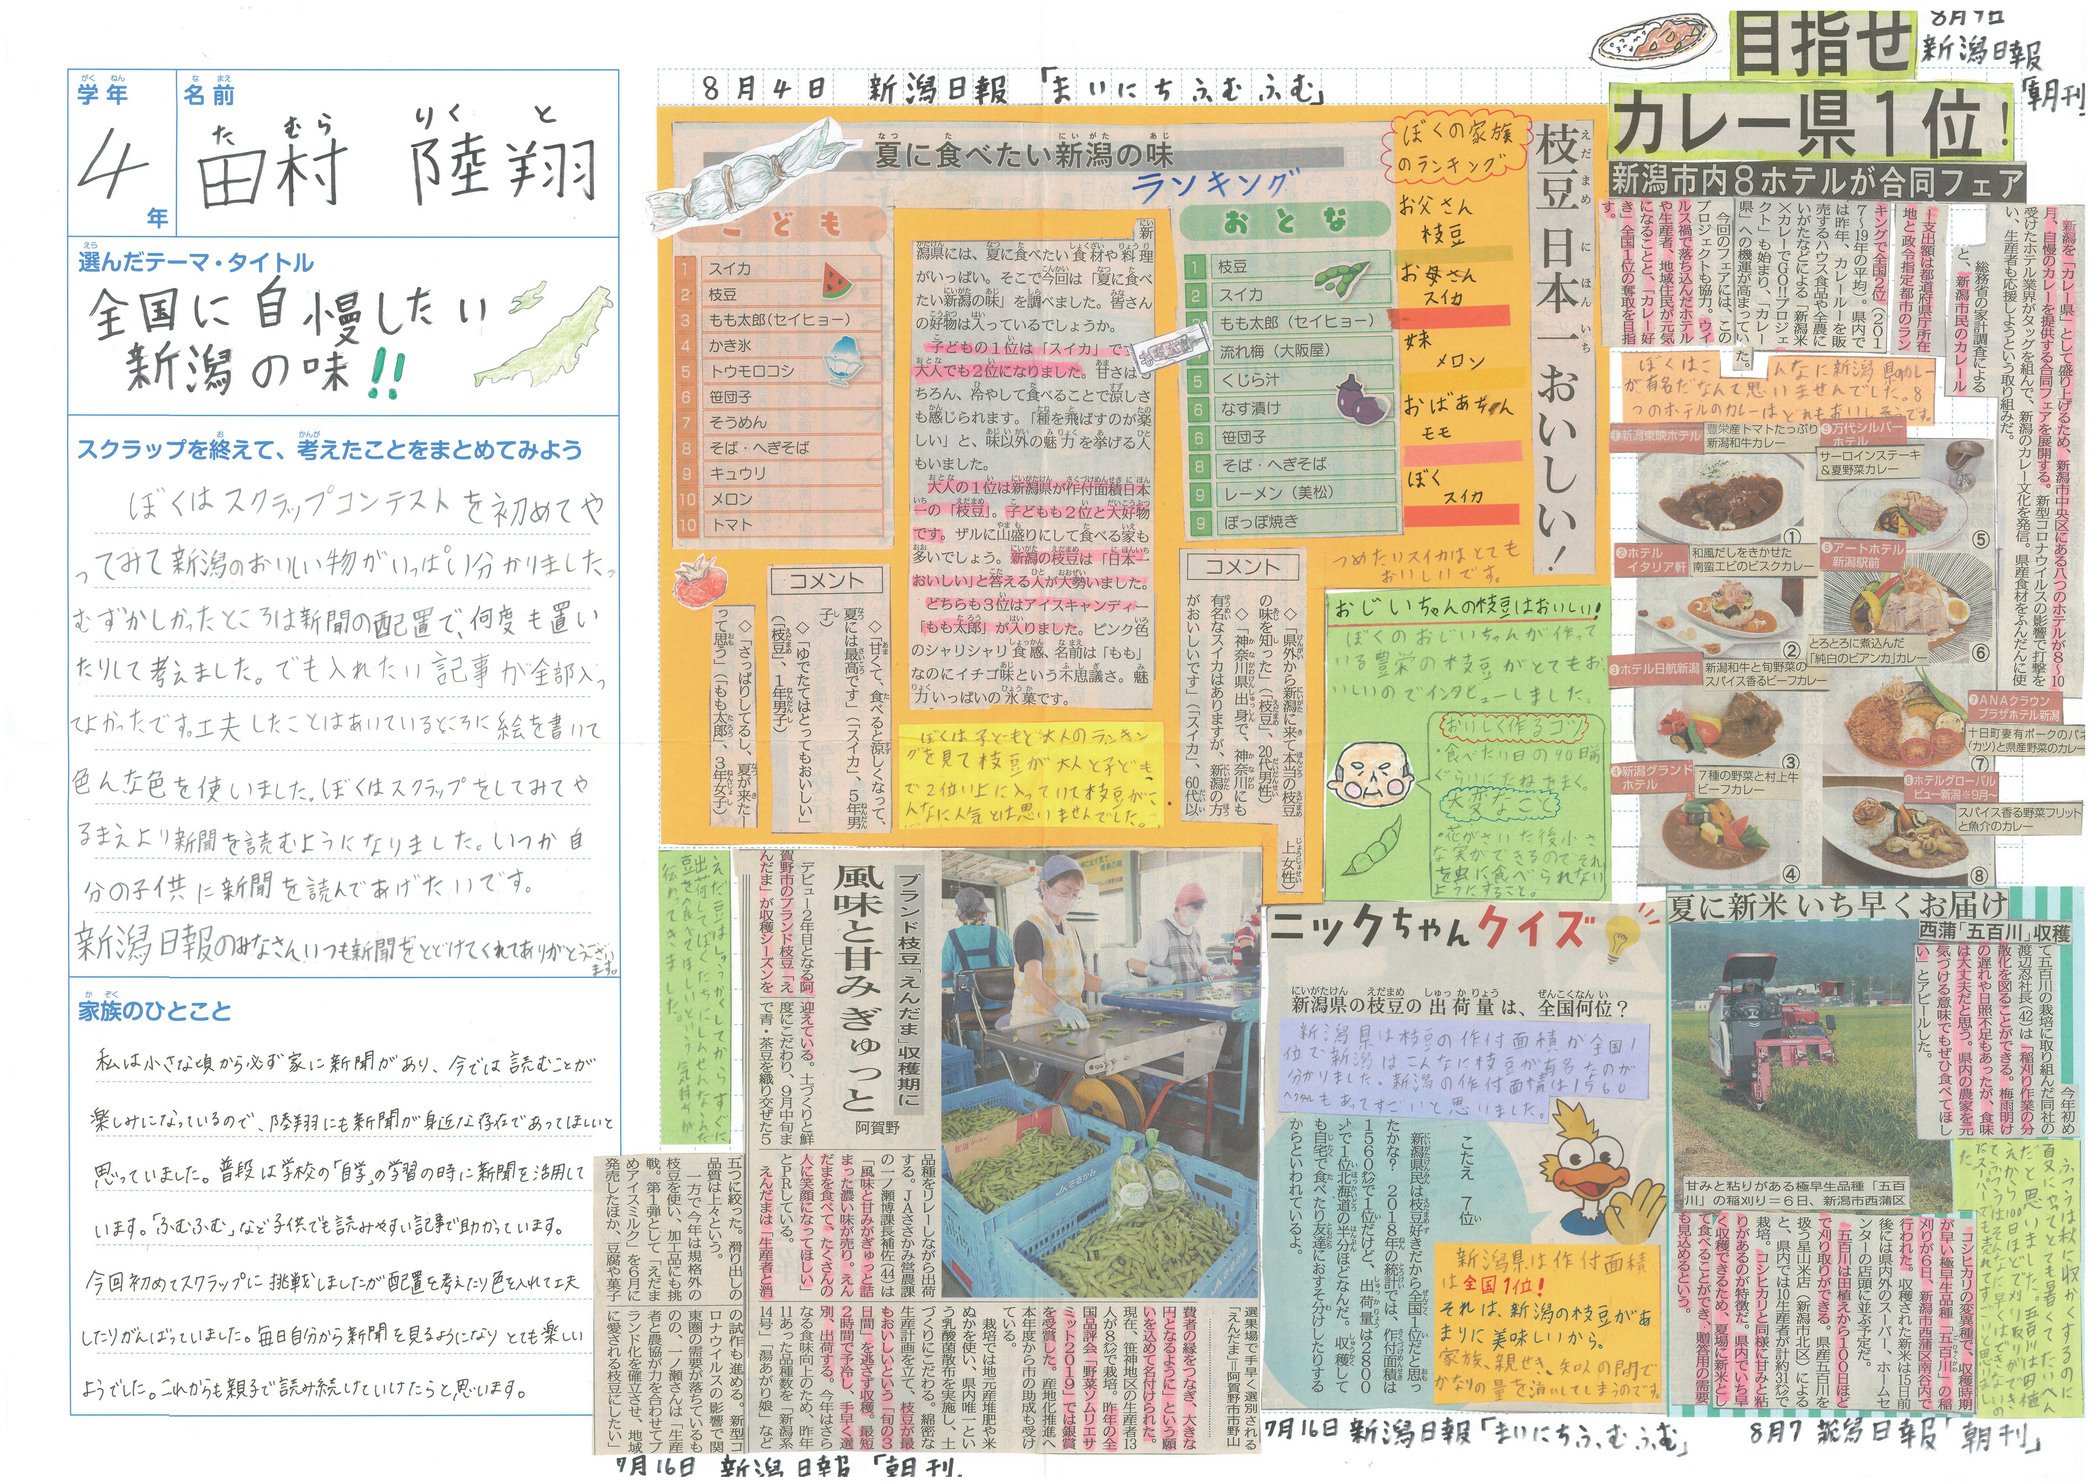 学年
4年
名前
たむら りくと
田村 陸翔
選んだテーマ・タイトル
全国に自慢したい
新潟の味!!
スクラップを終えて、考えたことをまとめてみよう
ぼくはスクラップコンテストを初めてや
ってみて新潟のおいしい物がいっぱい分かりました。
むずかしかったところは新聞の配置で、何度も置い
たりして考えました。でも入れたい記事が全部入っ
てよかったです。工夫したことはあいているところに絵を書いて
色んな色を使いました。ぼくはスクラップをしてみてや
るまえより新聞を読むようになりました。いつか自
分の子供に新聞を読んであげたいです。
新潟日報のみなさんいつも新聞をとどけてくれてありがとうござい
ます。
家族のひとこと
私は小さな頃から必ず家に新聞があり、今では読むことが
楽しみになっているので、陸翔にも新聞が身近な存在であってほしいと
思っていました。普段は学校の「自学」の学習の時に新聞を活用して
います。「ふむふむ」など子供でも読みやすい記事で助かっています。
今回初めてスクラップに挑戦しましたが配置を考えたり色を入れて工夫
したりがんばっていました。毎日自分から新聞を見るようになりとても楽しい
ようでした。これからも親子で読み続けていけたらと思います。
8月4日 新潟日報「まいにちふむふむ」
夏に食べたい新潟の味
ランキング
こども
1 スイカ
2 枝豆
3 もも太郎(セイヒョー)
4 かき氷
5 トウモロコシ
6 笹団子
7 そうめん
8 そば・へぎそば
9 キュウリ
10 メロン
10 トマト
新
潟県には、夏に食べたい食材や料理
がいっぱい。そこで今回は「夏に食べ
たい新潟の味」を調べました。皆さん
の好物は入っているでしょうか。
子どもの1位は「スイカ」で
大人でも2位になりました。甘さは
ちろん、冷やして食べることで涼しさ
も感じられます。「種を飛ばすのが楽
しい」と、味以外の魅力を挙げる人
もいました。
大人の1位は新潟県が作付面積日本
一の「枝豆」。子どもも2位と大好物
です。ザルに山盛りにして食べる家も
多いでしょう。新潟の枝豆は「日本一
おいしい」と答える人が大勢いました。
どちらも3位はアイスキャンディー
「もも太郎」が入りました。ピンク色
のシャリシャリ食感、名前は「もも」
なのにイチゴ味という不思議さ。魅
力いっぱいの氷菓です。
おとな
1 枝豆
2 スイカ
3 もも太郎(セイヒョー)
4 流れ梅(大阪屋)
5 くじら汁
6 なす漬け
6 笹団子
8 そば・へぎそば
9 レーメン(美松)
9 ぽっぽ焼き
ぼくの家族
のランキング
お父さん
枝豆
お母さん
スイカ
妹
メロン
おばあちゃん
モモ
ぼく
スイカ
つめたいスイカはとても
おいしいです。
枝豆日本一おいしい!
コメント
◇「甘くて、食べると涼しくなって、
夏には最高です」(「スイカ」、5年男
子)
◇「ゆでたてはとってもおいしい」
(「枝豆」、1年男子)
◇「さっぱりしてるし、夏が来たー
って思う」(「もも太郎」、3年女子)
コメント
◇「県外から新潟に来て本当の枝豆
の味を知った」(「枝豆」、20代男性)
◇「神奈川県出身で、神奈川にも
有名なスイカはありますが、新潟の方
がおいしいです」(「スイカ」、60代以
上女性)
ぼくは子どもと大人のランキン
グを見て枝豆が大人と子ども
で2位以上に入っていて枝豆がこ
んなに人気とは思いませんでした。
おじいちゃんの枝豆はおいしい!
ぼくのおじいちゃんが作って
いる豊栄の枝豆がとてもお
いしいのでインタビューしました。
おいしく作るコツ
・食べたい日の90日前
ぐらいにたねをまく。
大変なこと
・花がさいた後小さ
な実ができるのでそれ
を虫に食べられない
ようにすること。
8月9日
新潟日報
「朝刊」
目指せ
カレー県1位!
新潟市内8ホテルが合同フェア
新潟を「カレー県」として盛り上げるため、新潟市中央区にある八つのホテルが8〜10
月、自慢のカレーを提供する合同フェアを展開する。新型コロナウイルスの影響で打撃を
受けたホテル業界がタッグを組んで、新潟のカレー文化を発信。県産食材をふんだんに使
い、生産者も応援しようという取り組みだ。
総務省の家計調査による
と、新潟市民のカレールー
支出額は都道府県庁所在
地と政令指定都市のラン
キングで全国2位(201
7〜19年の平均)。県内で
は昨年、カレールーを販
売するハウス食品や全農に
いがたなどによる「新潟米
×カレーでGO!!プロジェ
クト」も始まり、「カレー
県」への機運が高まっていた。
今回のフェアには、この
プロジェクトも協力。ウイ
ルス禍で落ち込んだホテル
や生産者、地域住民が元気
になることと、「カレー好
き」全国1位の奪取を目指
す。
ぼくはこんなに新潟県のカレー
が有名だなんて思いませんでした。8
つのホテルのカレーはどれもおいしそうです。
①新潟東映ホテル
豊栄産トマトたっぷり
新潟和牛カレー
②ホテル
イタリア軒
和風だしをきかせた
南蛮エビのビスクカレー
③ホテル日航新潟
新潟和牛と旬野菜の
スパイス香るビーフカレー
④新潟グランド
ホテル
7種の野菜と村上牛
ビーフカレー
⑤万代シルバー
ホテル
サーロインステーキ
&夏野菜カレー
⑥アートホテル
新潟駅前
とろとろに煮込んだ
「純白のビアンカ」カレー
⑦ANAクラウン
プラザホテル新潟
十日町妻有ポークのパネ
(カツ)と県産野菜のカレー
⑧ホテルグローバル
ビュー新潟※9月〜
スパイス香る野菜フリット
と魚介のカレー
①
②
③
④
⑤
⑥
⑦
⑧
えだ豆はしゅうかくしてからすぐに
出荷してぼくたちにしんせんなえだ
豆を食べてほしいという気持ちが
伝わってきました。
ブランド枝豆「えんだま」収穫期に
風味と甘みぎゅっと
阿賀野
デビュー2年目となる阿
賀野市のブランド枝豆「え
んだま」が収穫シーズンを
迎えている。土づくりと鮮
度にこだわり、9月中旬ま
で青・茶豆を織り交ぜた5
品種をリレーしながら出荷
する。JAささかみ営農課
の一ノ瀬博課長補佐(44)は
「風味と甘みがぎゅっと詰
まった濃い味が売り。えん
だまを食べて、たくさんの
人に笑顔になってほしい」
とPRしている。
えんだまは「生産者と消
費者の縁をつなぎ、大きな
円となるように」という願
いを込めて名付けられた。
現在、笹神地区の生産者13
人が8㌶で栽培。昨年の全
国品評会「野菜ソムリエサ
ミット2019」では銀賞
を受賞した。産地化推進へ
本年度から市の助成も受け
ている。
栽培では地元産堆肥や米
ぬかを使い、県内唯一とい
う乳酸菌散布を実施し、土
づくりにこだわる。綿密な
生産計画を立て、枝豆が最
もおいしいという「旬の3
日間」を逃さず収穫。最短
2時間で予冷し、手早く選
別、出荷する。今年はさら
なる食味向上のため、昨年
11あった品種数を「新潟系
14号」「湯あがり娘」など
五つに絞った。滑り出しの
品質は上々という。
一方で今年は規格外の
枝豆を使い、加工品にも挑
戦。第1弾として「えだま
めアイスミルク」を6月に
発売したほか、豆腐や菓子
の試作も進める。新型コ
ロナウイルスの影響で関
東圏の需要が落ちているも
のの、一ノ瀬さんは「生産
者と農協が力を合わせてブ
ランド化を確立させ、地域
に愛される枝豆にしたい」
選果場で手早く選別される
「えんだま」=阿賀野市市野山
7月16日 新潟日報「朝刊」
ニックちゃんクイズ
新潟県の枝豆の出荷量は、全国何位?
新潟県は枝豆の作付面積が全国1
位で新潟はこんなに枝豆が有名なのが
分かりました。新潟の作付面積は1560
ヘクタルもあってすごいと思いました。
こたえ 7位
新潟県民は枝豆好きだから全国1位だと思っ
たかな? 2018年の統計では、作付面積は
1560㌶で1位だけど、出荷量は2800
㌧で1位北海道の半分ほどなんだ。収穫して
も自宅で食べたり友達におすそ分けしたりする
からといわれているよ。
新潟県は作付面積
は全国1位!
それは、新潟の枝豆があ
まりに美味しいから。
家族、親せき、知人の間で
かなりの量を消いしてしまうのです。
7月16日 新潟日報「まいにちふむふむ」
夏に新米 いち早くお届け
西蒲「五百川」収穫
今年初め
て五百川の栽培に取り組んだ同社の
渡辺忍社長(42)は「稲刈り作業の分
散化を図ることができる。梅雨明け
の遅れや日照不足もあったが、食味
は大丈夫だと思う。県内の農家を元
気づける意味でもぜひ食べてほし
い」とアピールした。
甘みと粘りがある極早生品種「五百
川」の稲刈り=6日、新潟市西蒲区
コシヒカリの変異種で、収穫時期
が早い極早生品種「五百川」の稲
刈りが6日、新潟市西蒲区南谷内で
行われた。収穫された新米は15日前
後には県内外のスーパー、ホームセ
ンターの店頭に並ぶ予定だ。
五百川は田植えから100日ほど
で刈り取りができる。県産五百川を
扱う星山米店(新潟市北区)による
と、県内では10生産者が計約31㌶で
栽培。コシヒカリと同様に甘みと粘
りがあるのが特徴だ。県内でいち早
く収穫できるため、夏場に新米とし
て食べることができ、贈答用の需要
も見込めるという。
8月7 新潟日報「朝刊」